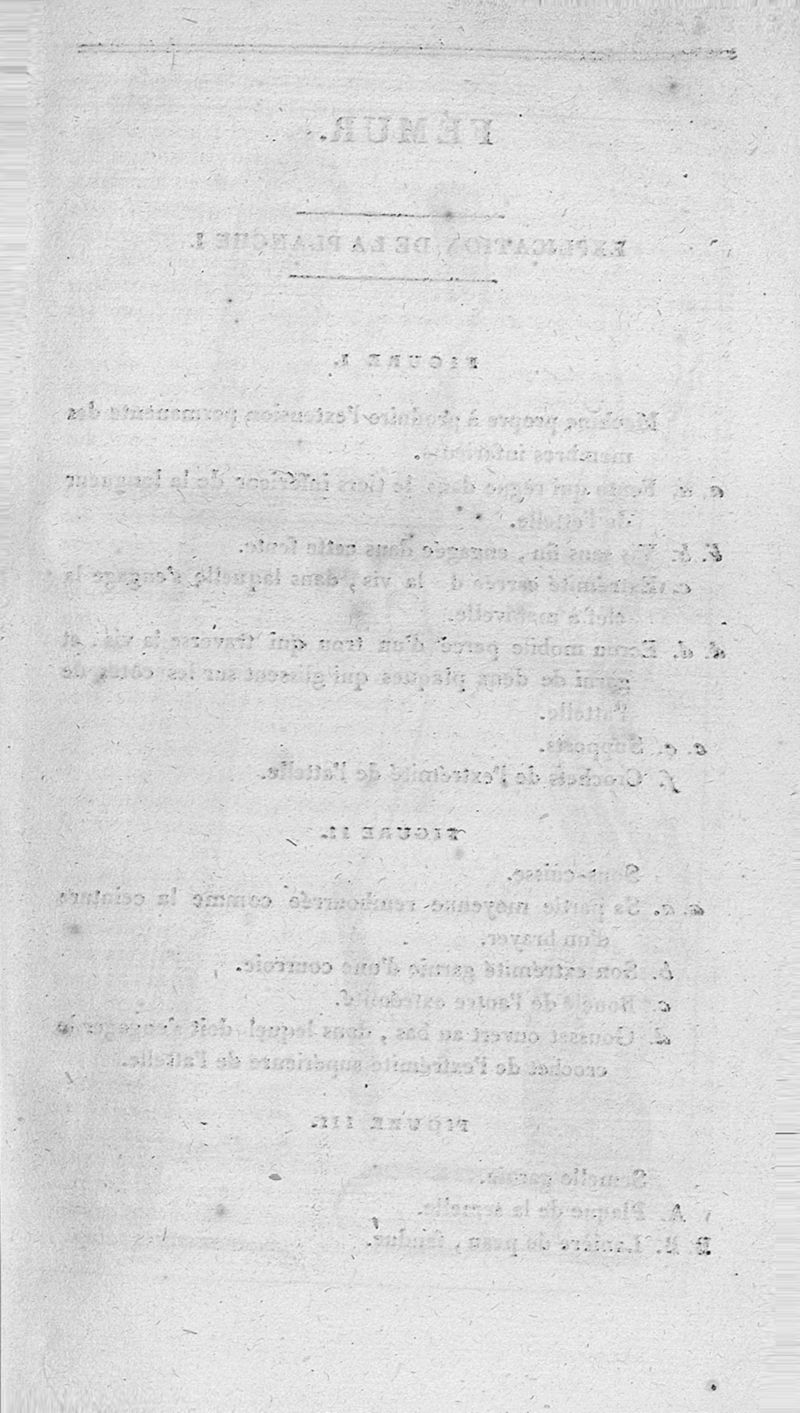 FÉMUR.
EXPLICATION DE LA PLANCHE I.
FIGURE I.
Machine propre à produire l'extension permanente des
membres inférieurs.
a. a. Fente qui règne dans le tiers inférieur de la longueur
de l'attelle.
b. b. Vis sans fin, engagée dans cette fente.
c. Extrémité carrée de la vis, dans laquelle s'engage la
clef à manivelle.
d. d. Ecrou mobile percé d'un trou qui traverse la vis, et
garni de deux plaques qui glissent sur les côtés de
l'attelle.
e. e. Supports.
f. Crochets de l'extrémité de l'attelle.
FIGURE II.
Sous-cuisse.
a. a. Sa partie moyenne rembourrée comme la ceinture
d'un brayer.
b. Son extrémité garnie d'une courroie.
c. Boucle de l'autre extrémité.
d. Gousset ouvert au bas, dans lequel doit s'engager le
crochet de l'extrémité supérieure de l'attelle.
FIGURE III.
Semelle garnie.
A. Plaque de la semelle.
B. B. Lanière de peau, fendue.